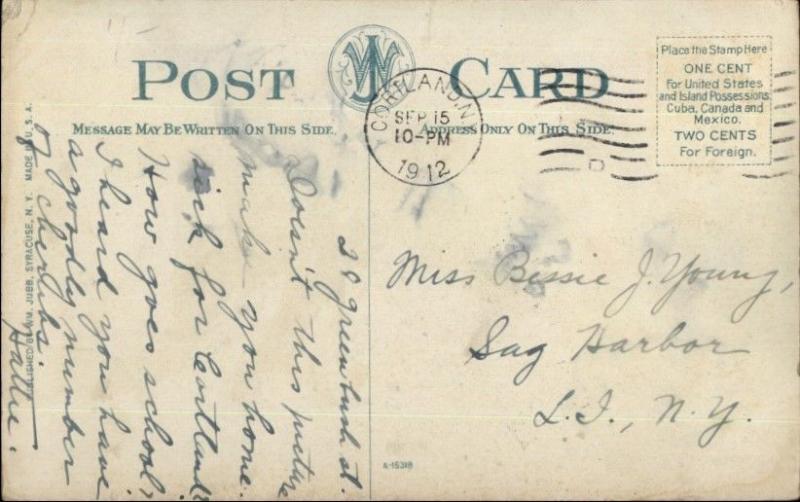 POST CARD
MESSAGE MAY BE WRITTEN ON THIS SIDE.
ADDRESS ONLY ON THIS SIDE.
Place the Stamp Here
ONE CENT
For United States
and Island Possessions
Cuba, Canada and
Mexico.
TWO CENTS
For Foreign.
CORTLAND, N.Y.
SEP 15
10-PM
1912
Miss Bessie J. Young,
Sag Harbor
L.I., N.Y.
28 Greenbush st.
Doesn't this picture
make you home
sick for Cortland?
How goes school,
I heard you have
a goodly number
of cherubs.
Hattie.
PUBLISHED BY WM. JUBB, SYRACUSE, N. Y. MADE IN U. S. A.
A-15318